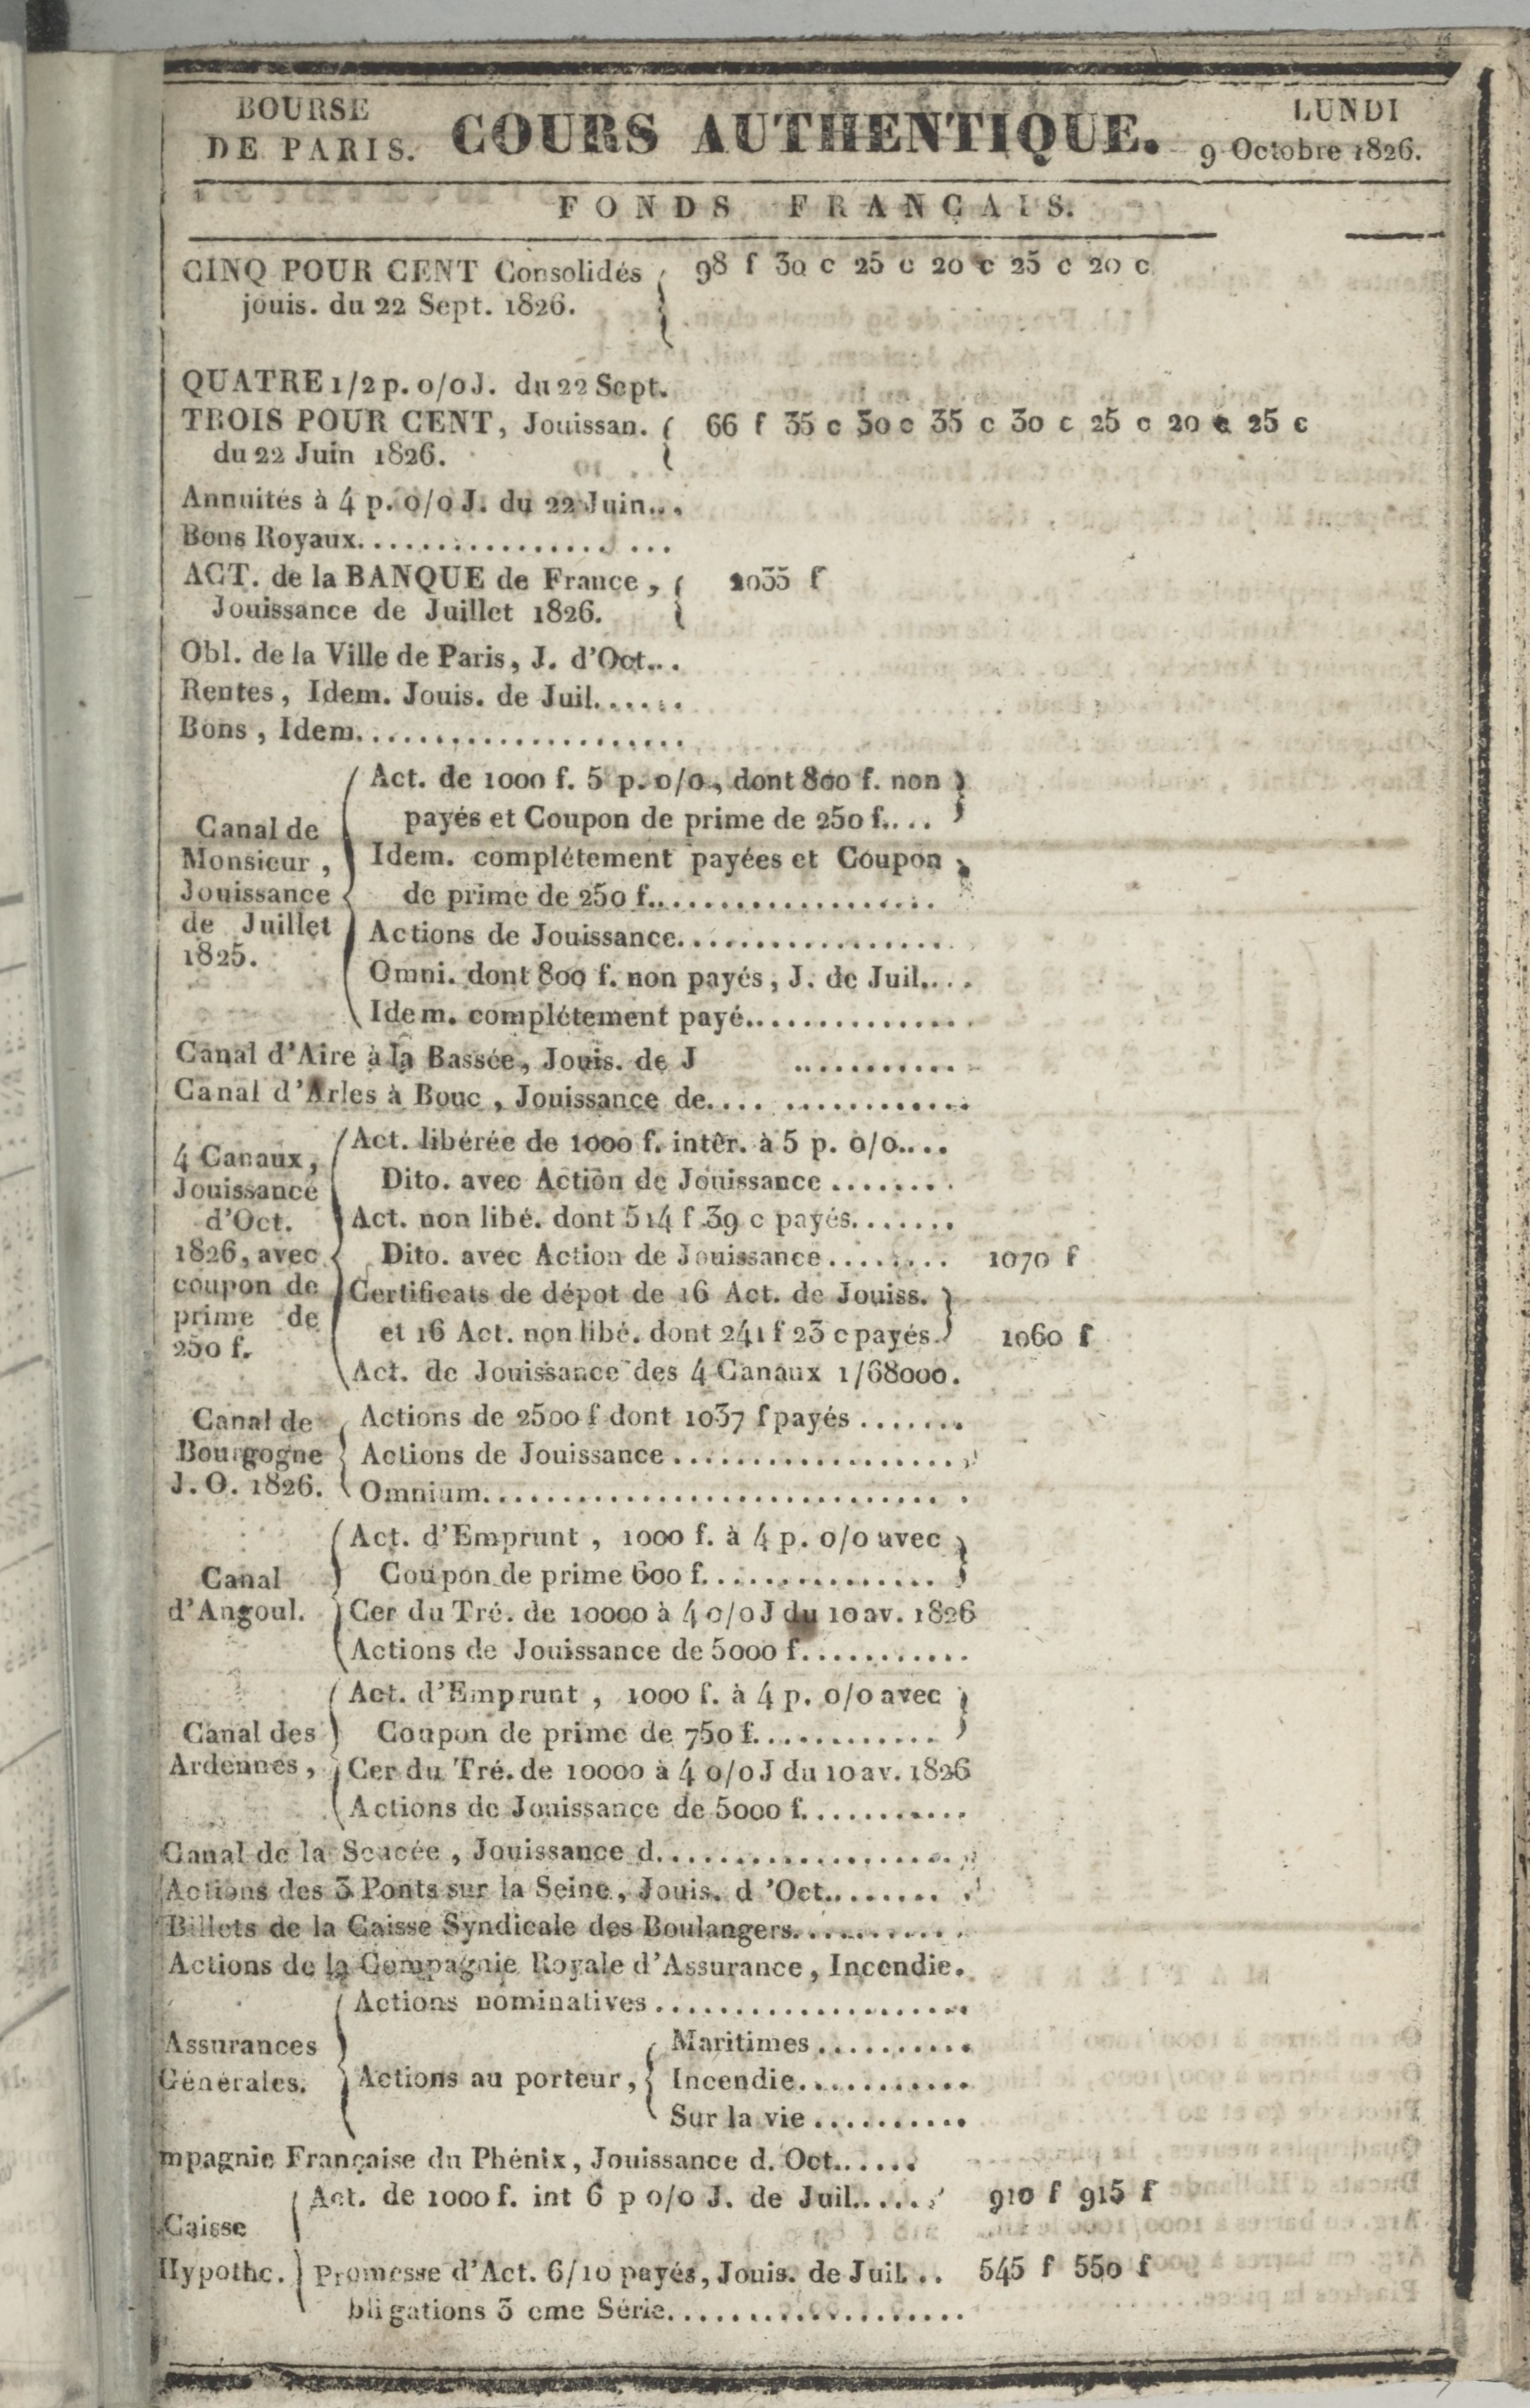 BOURSE
DE PARIS.
COURS AUTHENTIQUE.
LUNDI
9 Octobre 1826.
FONDS FRANÇAIS.
CINQ POUR CENT Consolidés
jouis. du 22 Sept. 1826.
98 f 30 c 25 c 20 c 25 c 20 c
QUATRE 1/2 p. o/o J. du 22 Sept.
TROIS POUR CENT, Jouissan.
du 22 Juin 1826.
66 f 35 c 30 c 35 c 30 c 25 c 20 c 25 c
Annuités à 4 p. o/o J. du 22 Juin...
Bons Royaux...................
ACT. de la BANQUE de France,
Jouissance de Juillet 1826.
2035 f
Obl. de la Ville de Paris, J. d'Oct...
Rentes, Idem. Jouis. de Juil......
Bons, Idem.....................
Canal de
Monsieur,
Jouissance
de Juillet
1825.
Act. de 1000 f. 5 p. o/o, dont 800 f. non
payés et Coupon de prime de 250 f....
Idem. complétement payées et Coupon
de prime de 250 f...................
Actions de Jouissance.................
Omni. dont 800 f. non payés, J. de Juil....
Idem. complétement payé...............
Canal d'Aire à la Bassée, Jouis. de J ...........
Canal d'Arles à Bouc, Jouissance de.... ............
4 Canaux,
Jouissance
d'Oct.
1826, avec
coupon de
prime de
250 f.
Act. libérée de 1000 f. intêr. à 5 p. o/o....
Dito. avec Action de Jouissance ........
Act. non libé. dont 514 f 39 c payés.......
Dito. avec Action de Jouissance........ 1070 f
Certificats de dépot de 16 Act. de Jouiss.
et 16 Act. non libé. dont 241 f 23 c payés. 1060 f
Act. de Jouissance des 4 Canaux 1/68000.
Canal de
Bourgogne
J. O. 1826.
Actions de 2500 f dont 1037 f payés .......
Actions de Jouissance ...................
Omnium..............................
Canal
d'Angoul.
Act. d'Emprunt, 1000 f. à 4 p. o/o avec
Coupon de prime 600 f...............
Cer du Tré. de 10000 à 4 o/o J du 10 av. 1826
Actions de Jouissance de 5000 f...........
Canal des
Ardennes,
Act. d'Emprunt, 1000 f. à 4 p. o/o avec
Coupon de prime de 750 f............
Cer du Tré. de 10000 à 4 o/o J du 10 av. 1826
Actions de Jouissance de 5000 f...........
Canal de la Scacée, Jouissance d...................
Actions des 3 Ponts sur la Seine, Jouis. d 'Oct.........
Billets de la Caisse Syndicale des Boulangers...........
Actions de la Compagnie Royale d'Assurance, Incendie.
Assurances
Générales.
Actions nominatives ....................
Actions au porteur,
Maritimes ..........
Incendie...........
Sur la vie ..........
mpagnie Française du Phénix, Jouissance d. Oct......
Caisse
Hypothc.
Act. de 1000 f. int 6 p o/o J. de Juil...... 910 f 915 f
Promesse d'Act. 6/10 payés, Jouis. de Juil... 545 f 550 f
bligations 3 eme Série...................